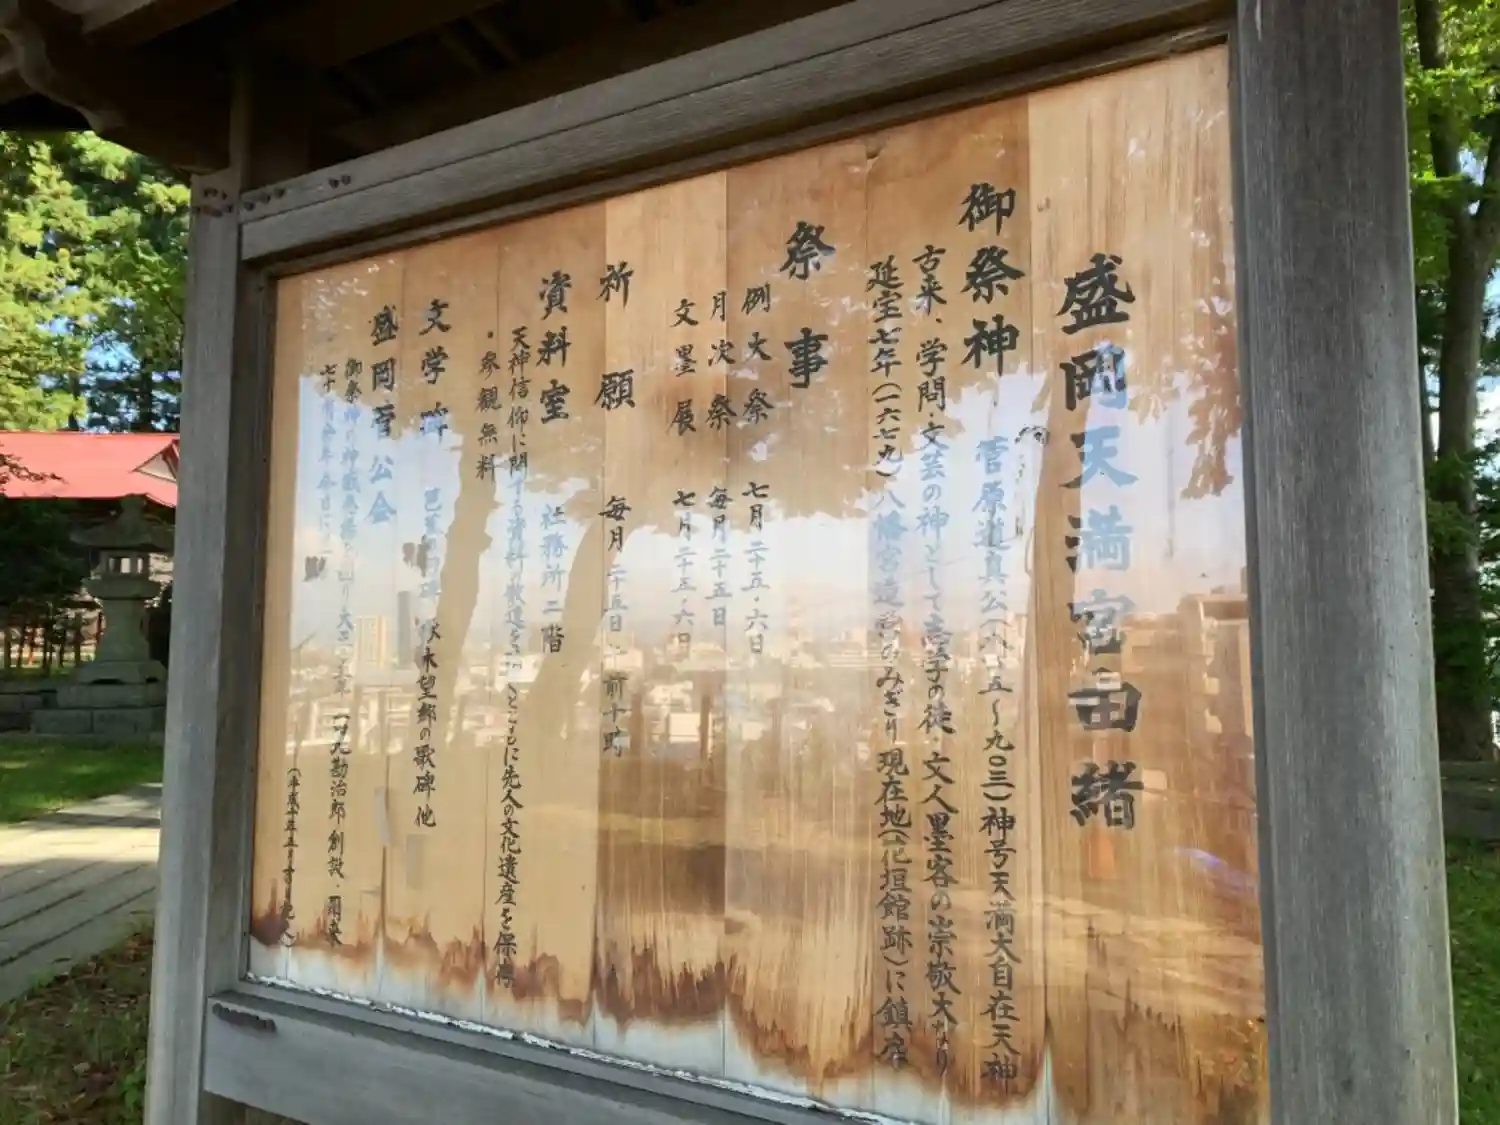 盛岡天満宮由緒
御祭神 菅原道真公(八四五〜九〇三)神号天満大自在天神
古来、学問・文芸の神として志学の徒・文人墨客の崇敬大なり
延宝七年(一六七九)八幡宮造営のみぎり現在地(花垣館跡)に鎮座
祭事
例大祭 七月二十五・六日
月次祭 毎月二十五日
文墨展 七月二十五・六日
祈願 毎月二十五日 前十時
資料室 社務所二階
天神信仰に関する資料の散逸を とともに先人の文化遺産を保存
・参観無料
文学碑 芭蕉句碑 啄木望郷の歌碑 他
盛岡菅公会
御祭神の神職 大正 年 勘治郎創設・爾来
七十有余年今日に
(平成十五年